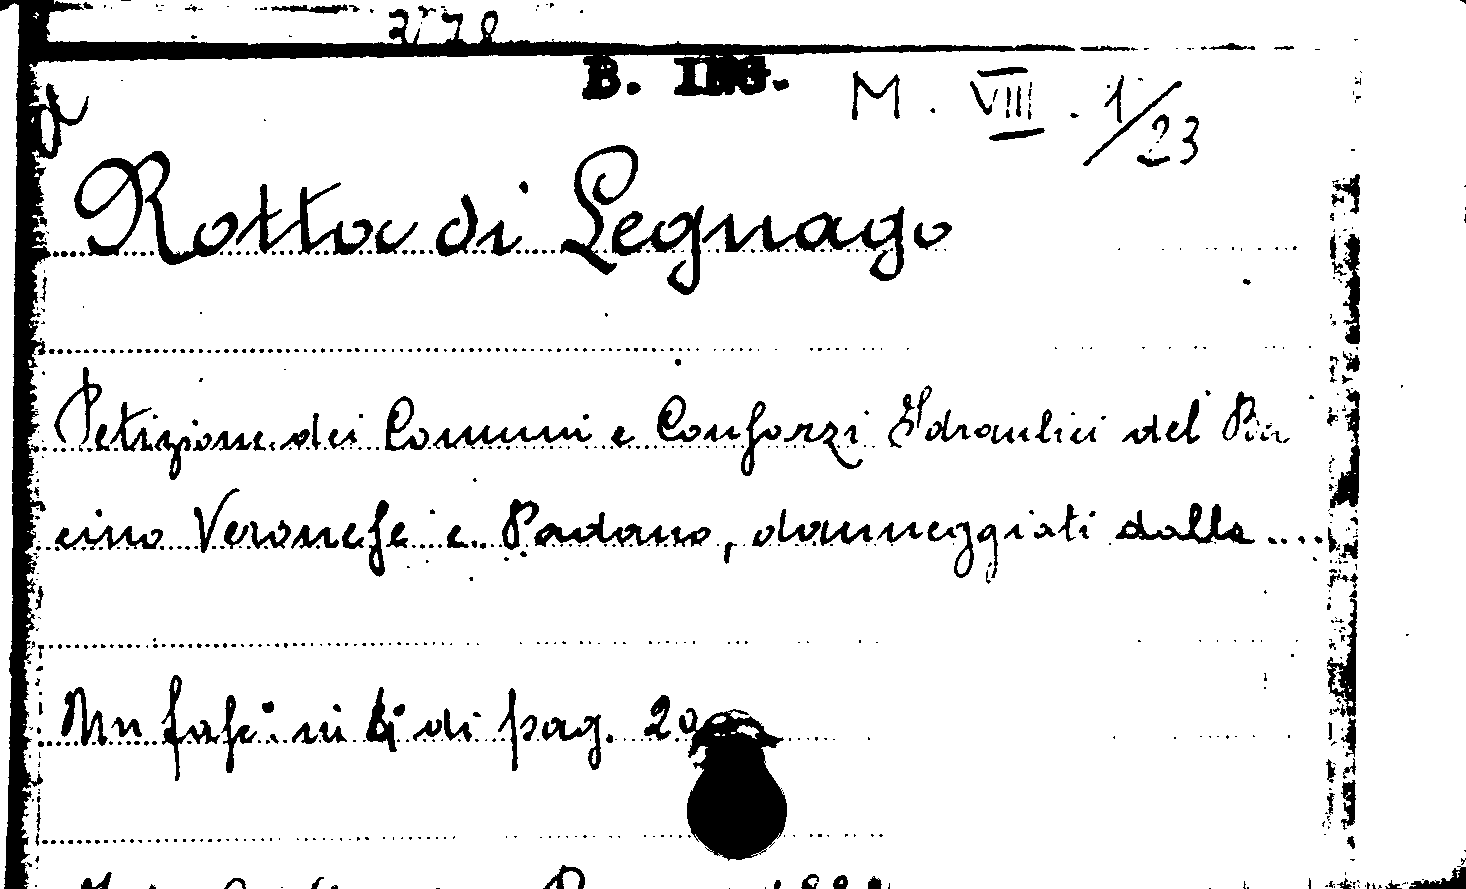 3178
B. ING. M. VIII. 1/23
Rotta di Legnago
Petizione dei Comuni e Consorzi Idraulici del Ba
cino Veronese e Padano, danneggiati dalla ....
Un fasc. in 4° di pag. 20